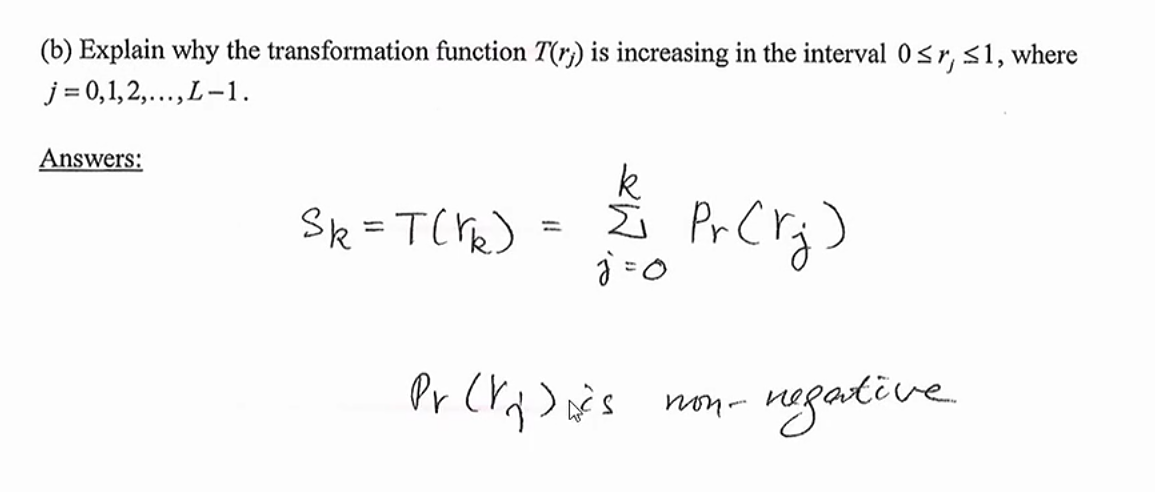 (b) Explain why the transformation function T(rⱼ) is increasing in the interval 0 ≤ rⱼ ≤ 1, where
j = 0,1,2,...,L−1.
Answers:
Sk = T(rk) = Σ_{j=0}^{k} Pr(rj)
Pr(rj) is non-negative